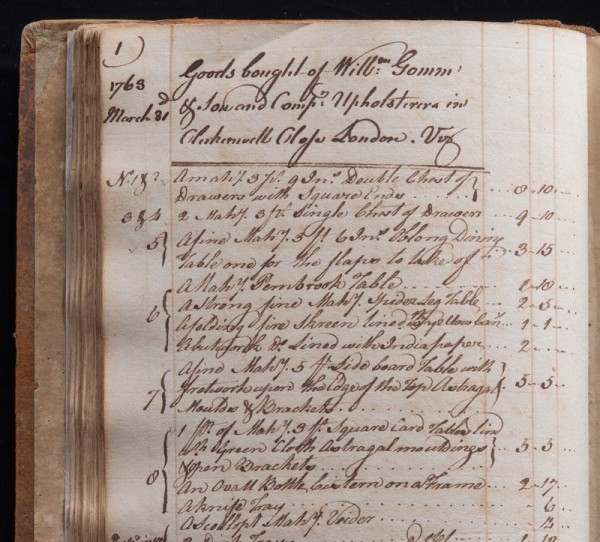 1
1763 Goods bought of Will:m Gomm
March 31 & Son and Comp:y Upholsterers in
Clerkenwell Close London. Viz
No. 1 & 2 A mah:y 3 ft 9 Ins Double Chest of
Drawers with Square Ends 8 - 10
3 & 4 2 Mah:y 3 ft Single Chest of Drawers 9 - 10
5 A fine Mah:y 5 ft 6 Ins Oblong Dining
Table one for the flaps to take of 3 - 15
A Mah:y Pembrook Table 1 - 18
6 A Strong fine Mah:y Spider Leg Table 2 - 5
A folding fire Skreen lined with yellow 1 - 1
A cutwork Do. Lined with India paper 2
7 A fine Mah:y 5 ft Side board Table with
fretwork upon the Edge of the Top Astragal 5 - 5
Mould:s & Brackets
8 1 pr. of Mah:y 3 ft Square Card Tables lin'd
with Green Cloth Astragal mouldings 5 - 5
& open Brackets
An Ovall Bottle Cistern on a Frame 2 - 17
A knife Tray - 6
A Scollopt Mah:y Voider 13